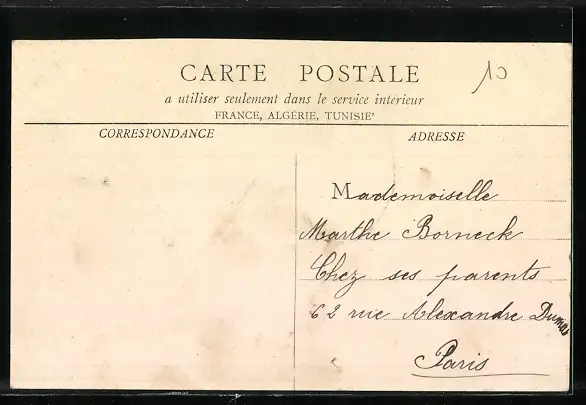 10
CARTE POSTALE
a utiliser seulement dans le service intérieur
FRANCE, ALGÉRIE, TUNISIE'
CORRESPONDANCE
ADRESSE
Mademoiselle
Marthe Borneck
Chez ses parents
62 rue Alexandre Dumas
Paris